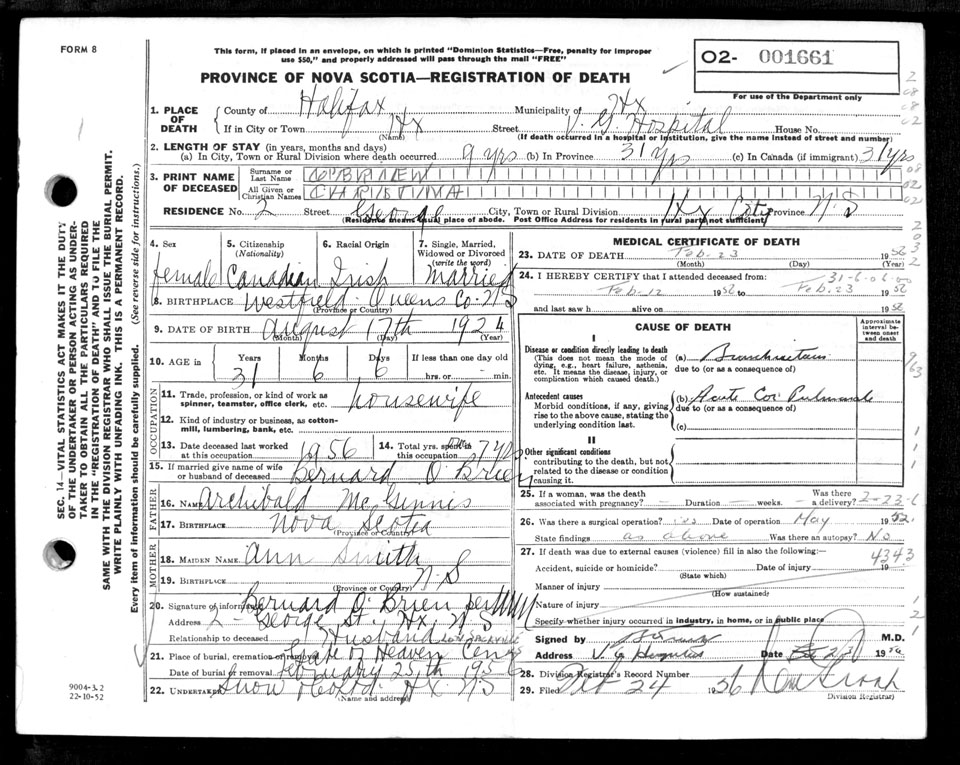 FORM 8
This form, if placed in an envelope, on which is printed "Dominion Statistics—Free, penalty for improper
use $50," and properly addressed will pass through the mail "FREE"
02- 001661
For use of the Department only
PROVINCE OF NOVA SCOTIA—REGISTRATION OF DEATH
1. PLACE OF DEATH
County of Halifax Municipality of Hx
If in City or Town Hx Street V. G. Hospital House No.
(Name) (If death occurred in a hospital or institution, give the name instead of street and number)
2. LENGTH OF STAY (in years, months and days)
(a) In City, Town or Rural Division where death occurred 9 yrs (b) In Province 31 yrs (c) In Canada (if immigrant) 31 yrs
3. PRINT NAME OF DECEASED
Surname or Last Name O'BRIEN
All Given or Christian Names CHRISTINA
RESIDENCE No. 2 Street George City, Town or Rural Division Hx City Province N.S
(Residence means usual place of abode. Post Office Address for residents in rural parts not sufficient)
4. Sex
female
5. Citizenship (Nationality)
Canadian
6. Racial Origin
Irish
7. Single, Married, Widowed or Divorced (write the word)
Married
8. BIRTHPLACE Westfield Queens Co. N.S
(Province or Country)
9. DATE OF BIRTH August 17th 1924
(Month) (Day) (Year)
10. AGE in
Years Months Days If less than one day old
31 6 6 hrs. or min.
OCCUPATION
11. Trade, profession, or kind of work as spinner, teamster, office clerk, etc. housewife
12. Kind of industry or business, as cotton-mill, lumbering, bank, etc.
13. Date deceased last worked at this occupation 1956
14. Total yrs. spent in this occupation 7 yrs
15. If married give name of wife or husband of deceased Bernard O'Brien
FATHER
16. NAME Archibald McGinnis
17. BIRTHPLACE Nova Scotia
(Province or Country)
MOTHER
18. MAIDEN NAME Ann Smith
19. BIRTHPLACE N.S
(Province or Country)
20. Signature of informant Bernard O'Brien per
Address 2 - George St. Hx N.S
Relationship to deceased Husband
21. Place of burial, cremation or removal Gate of Heaven Cem
Date of burial or removal February 25th 1956
22. UNDERTAKER Snow & Co Ltd. Hx N.S
(Name and address)
MEDICAL CERTIFICATE OF DEATH
23. DATE OF DEATH Feb. 23 1956
(Month) (Day) (Year)
24. I HEREBY CERTIFY that I attended deceased from:
31-6-06
Feb. 12 1956 to Feb. 23 1956
and last saw h alive on 1956
CAUSE OF DEATH
Approximate interval between onset and death
I
Disease or condition directly leading to death
(This does not mean the mode of dying, e.g., heart failure, asthenia, etc. It means the disease, injury, or complication which caused death.)
(a) Bronchiectasis
due to (or as a consequence of)
Antecedent causes
Morbid conditions, if any, giving rise to the above cause, stating the underlying condition last.
(b) Acute Cor Pulmonale
due to (or as a consequence of)
(c)
II
Other significant conditions
contributing to the death, but not related to the disease or condition causing it.
25. If a woman, was the death associated with pregnancy? — Duration — weeks. Was there a delivery?
2-23-6
26. Was there a surgical operation? yes Date of operation May 1952
State findings as above Was there an autopsy? No
27. If death was due to external causes (violence) fill in also the following:—
4343
Accident, suicide or homicide? Date of injury 19
(State which)
Manner of injury
(How sustained)
Nature of injury
Specify whether injury occurred in industry, in home, or in public place
Signed by M.D.
Address V. G. Hospital Date Feb 23 1956
28. Division Registrar's Record Number
29. Filed Feb 24 1956
Division Registrar)
SEC. 14—VITAL STATISTICS ACT MAKES IT THE DUTY
OF THE UNDERTAKER OR PERSON ACTING AS UNDER-
TAKER TO OBTAIN ALL THE PARTICULARS REQUIRED
IN THE "REGISTRATION OF DEATH" AND TO FILE THE
SAME WITH THE DIVISION REGISTRAR WHO SHALL ISSUE THE BURIAL PERMIT.
WRITE PLAINLY WITH UNFADING INK. THIS IS A PERMANENT RECORD.
Every item of information should be carefully supplied. (See reverse side for instructions.)
9004-3.2
22-10-52